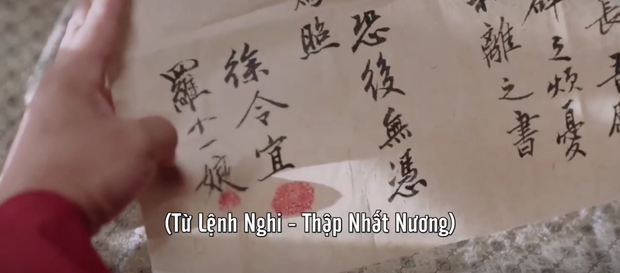 長
碎之煩憂
離之書
恐後無憑
照
徐令宜
羅十一娘
(Từ Lệnh Nghi - Thập Nhất Nương)